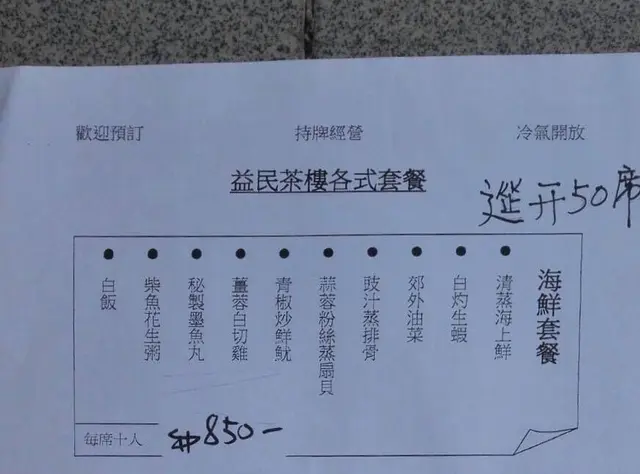 歡迎預訂
持牌經營
冷氣開放
益民茶樓各式套餐
筵开50席
海鮮套餐
清蒸海上鮮
白灼生蝦
郊外油菜
豉汁蒸排骨
蒜蓉粉絲蒸扇貝
青椒炒鮮魷
薑蓉白切雞
秘製墨魚丸
柴魚花生粥
白飯
每席十人
850-